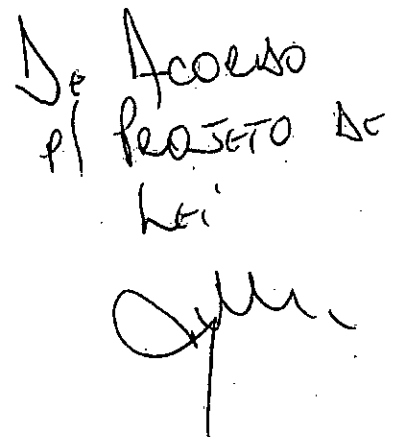 De Acordo
p/ Projeto de
Lei